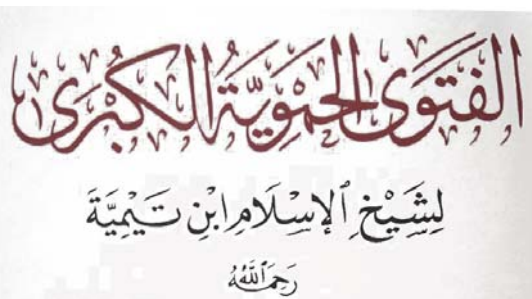 الفَتْوَى الحَمَوِيَّةُ الكُبْرَى
لِشَيْخِ ٱلإِسْلَامِ ابْنِ تَيْمِيَّةَ
رَحِمَهُ ٱللَّهُ